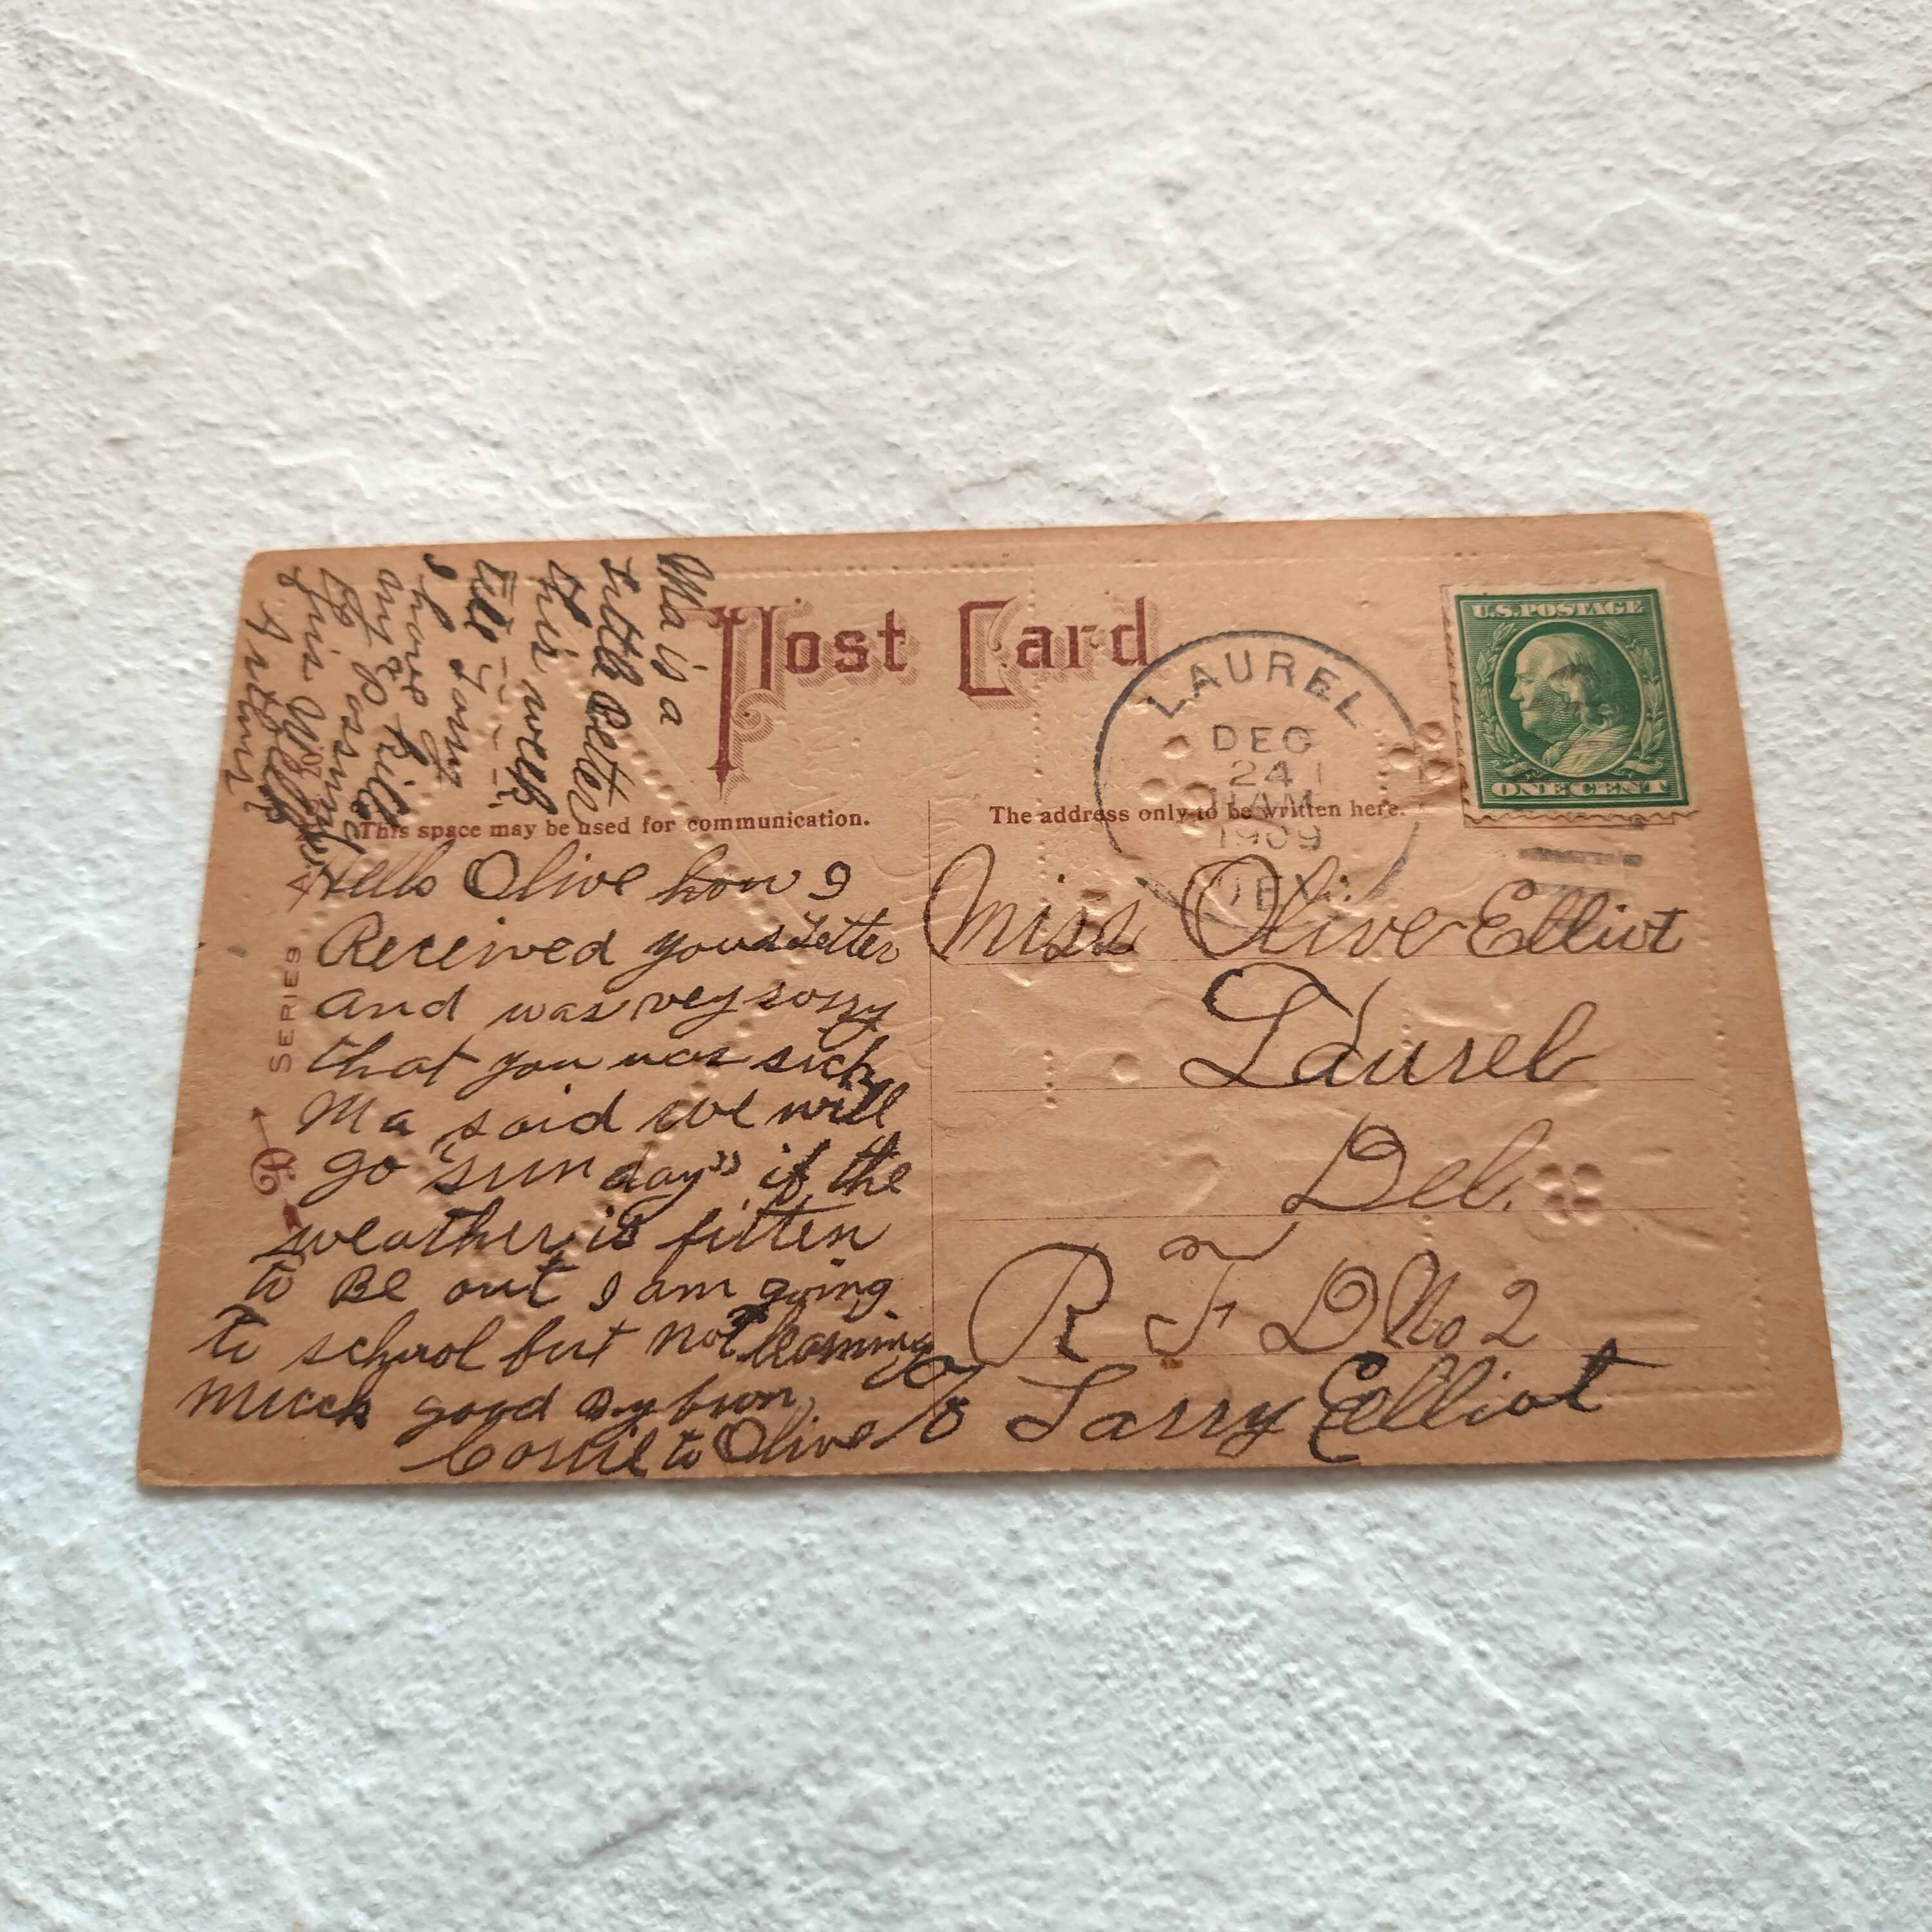 Post Card
This space may be used for communication.
The address only to be written here.
U.S. POSTAGE
ONE CENT
LAUREL
DEC
24
11 AM
1909
DEL.
SERIES
Hello Olive how I
Received your Letter
and was very sorry
that you was sick
Ma said we will
go "sunday" if the
weather is fitten
to Be out I am going
to school but not learning
much good By from
to Olive
Ma is a
Little Better
this week
tell your
I have
any
this
Miss Olive Elliot
Laurel
Del.
R F D No 2
c/o Larry Elliot